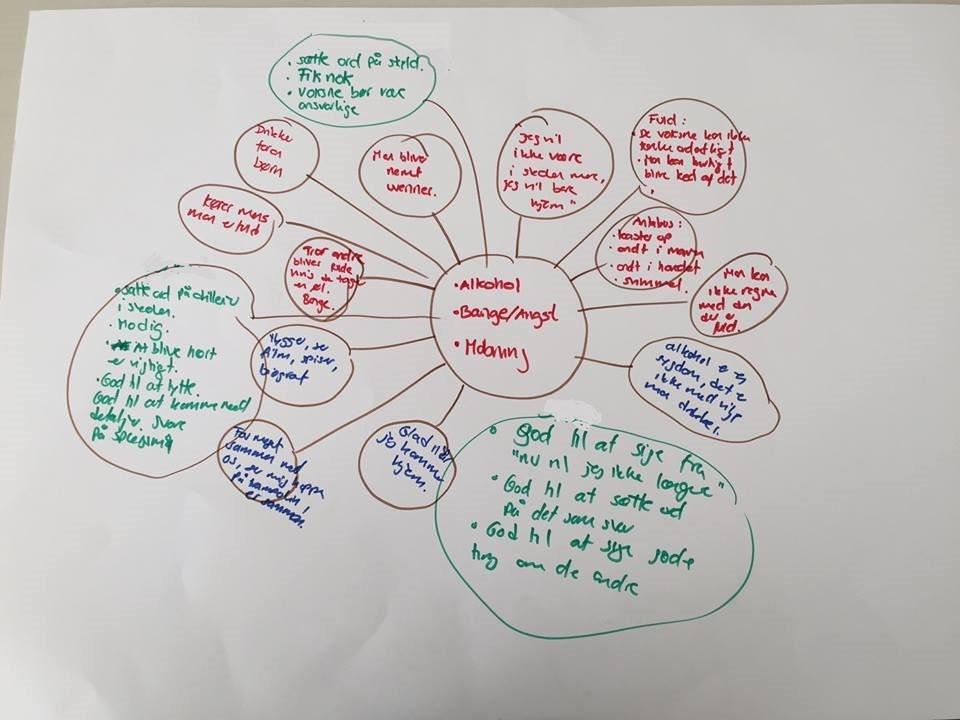 • sætte ord på skyld.
• Fik nok
• voksne bør være
ansvarlige
Drikke
foran
børn
Man bliver
nemt
uvenner.
Jeg vil
ikke være
i skolen mere,
jeg vil bare
hjem"
Fuld:
• De voksne kan ikke
tænke ordentligt
• Man kan hurtigt
blive ked af det
Kører mens
man er fuld
Tror andre
bliver
hvis de
en øl.
Bange.
Antabus:
• kaster op
• ondt i maven
• ondt i hovedet
• svimmel.
Man kan
ikke regne
med den
der er
fuld.
• Alkohol
• Bange/Angst
• Mdoning
• Sætte ord på
i skolen.
• Modig.
• At blive hørt
er vigtigt.
• God til at lytte.
God til at komme med
detaljer. svare
på spørgsmål
Hygge, se
film, spise,
biograf
alkohol er en
sygdom, det er
ikke med vilje
man drikker.
sammen med
os, se mig hoppe
på trampolin,
er sammen.
Glad når
jeg kommer
hjem.
• God til at sige fra
"nu vil jeg ikke længere"
• God til at sætte ord
på det som sker
• God til at sige søde
ting om de andre